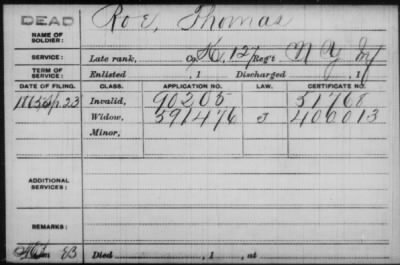 DEAD
Roe, Thomas
NAME OF SOLDIER:
SERVICE: Late rank, Co. K, 127 Reg't N Y Inf
TERM OF SERVICE: Enlisted , 1 Discharged , 1
DATE OF FILING. CLASS. APPLICATION NO. LAW. CERTIFICATE NO.
1865 Sep. 23 Invalid, 90205 51768
Widow, 591476 J 400013
Minor,
ADDITIONAL SERVICES:
REMARKS:
EB Died , 1 , at